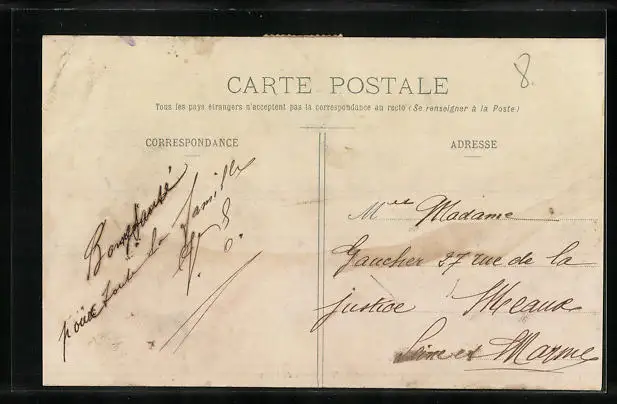 8.
CARTE POSTALE
Tous les pays étrangers n'acceptent pas la correspondance au recto (Se renseigner à la Poste)
CORRESPONDANCE
Bonne Santé
pour toute la famille
ADRESSE
Mlle Madame
Gaucher 27 rue de la
justice Meaux
Seine et Marne